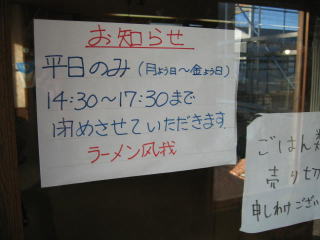 お知らせ
平日のみ(月よう日〜金よう日)
14:30〜17:30まで
閉めさせていただきます.
ラーメン风我
ごはん類
売り切
申しわけござい